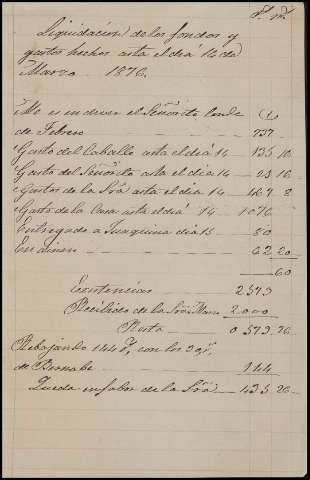 Liquidacion de los fondos y
gastos hechos asta el dia 14 de
Marzo 1876.
Me es en dever el Señorito Conde
de Febrero 737
Gasto del Caballo asta el dia 14 135 10
Gasto del Señorito asta el dia 14 23 16
Gastos de la Sra asta el dia 14 467 8
Gasto de la Casa asta el dia 14 1076
Entregado a Juaquina dia 15 50
En dinero 62 20
60
Existencias 2573
Recibido de la Sra 2000
Resta 0 573 26
Rebajando 144 con los 30
de Bernabe 144
Queda en fabor de la Sra 435 26